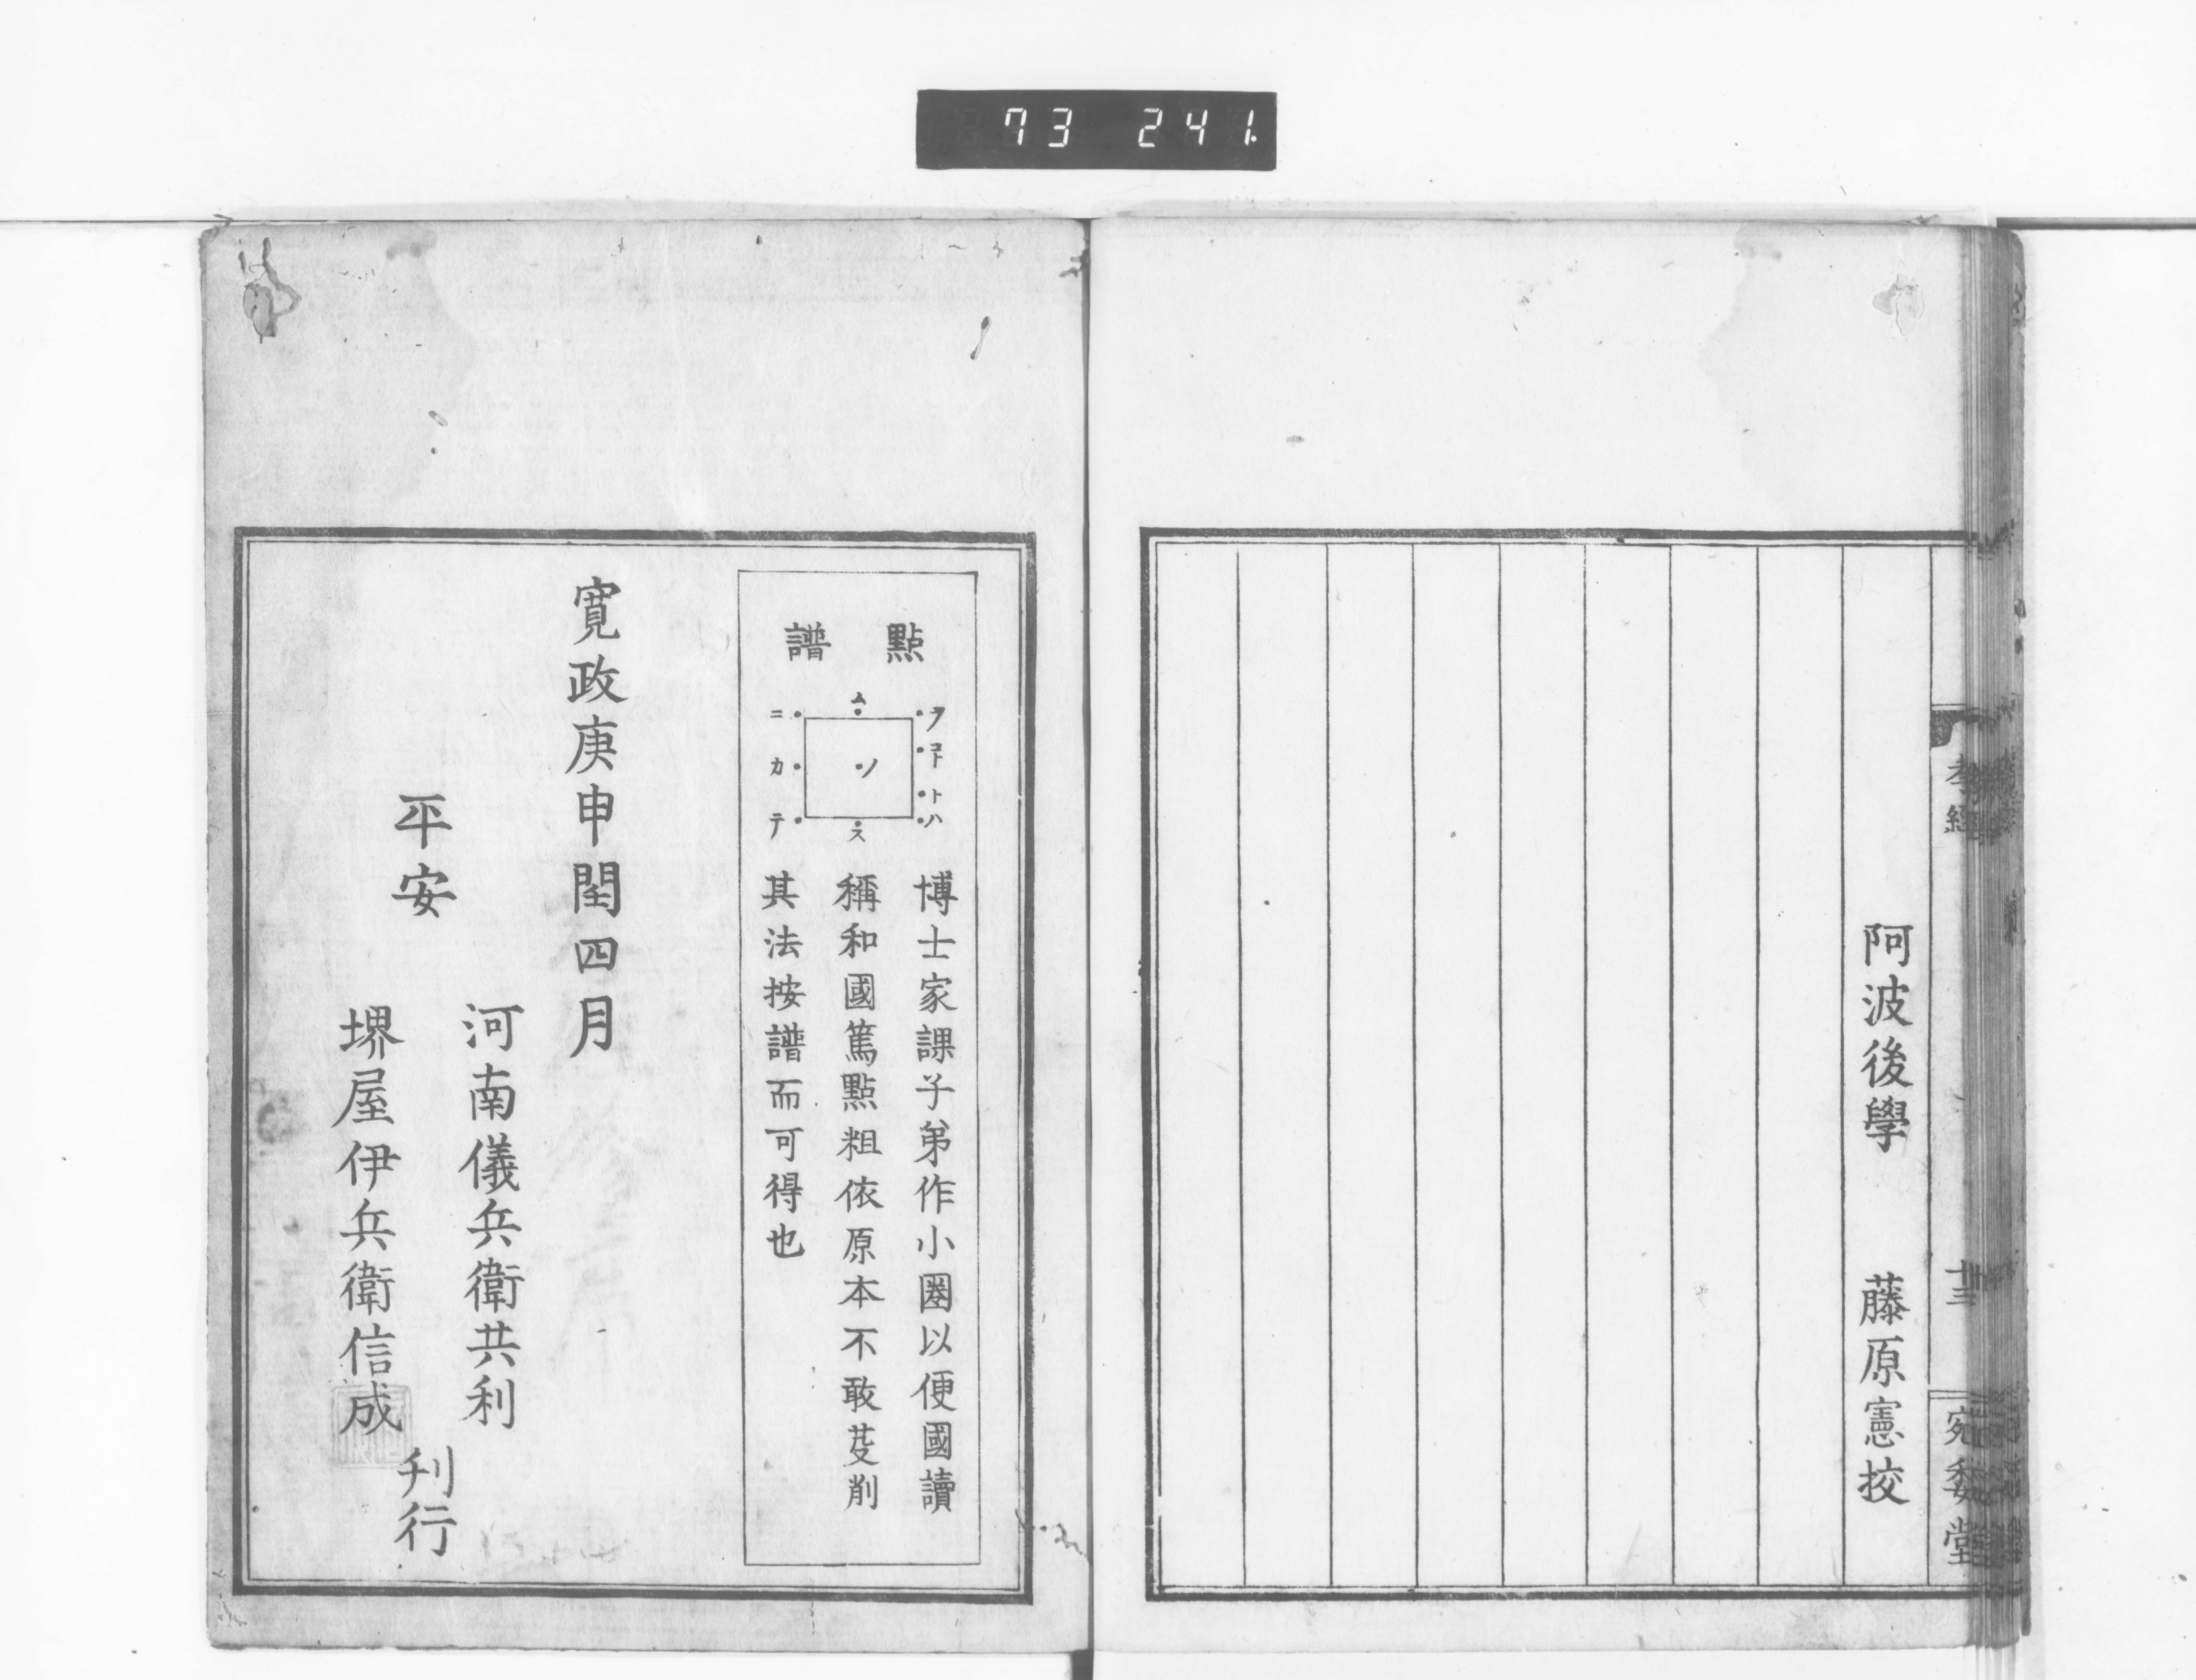 73 241.
孝經
十三
宛委堂
阿波後學 藤原憲挍
點譜
ヲ
コト
ト
ハ
ム
ノ
ス
ニ
カ
テ
博士家課子弟作小圏以便國讀
稱和國篤點粗依原本不敢芟削
其法按譜而可得也
寛政庚申閏四月
平安
河南儀兵衛共利
堺屋伊兵衛信成
刋行